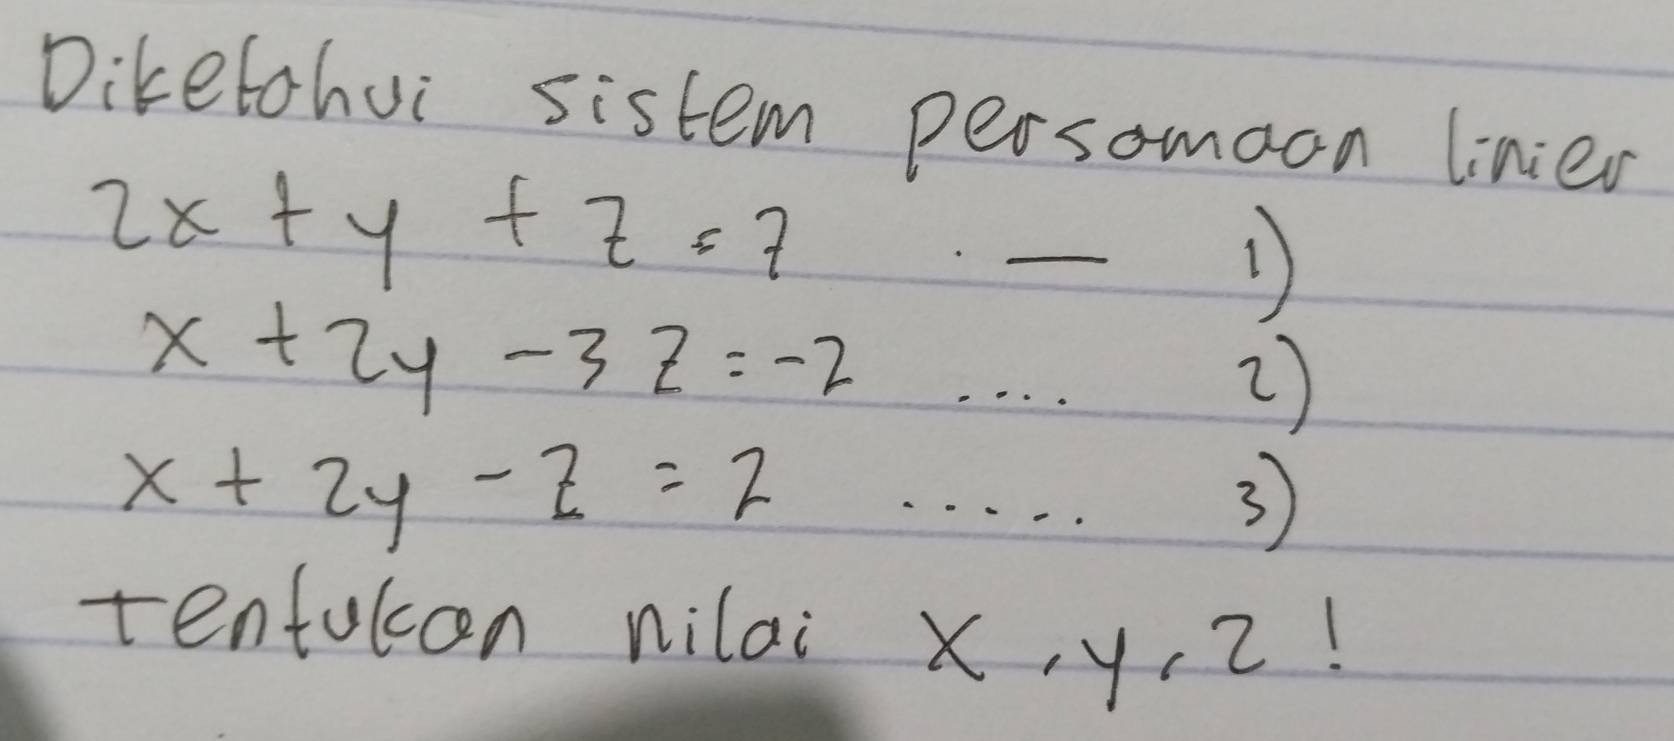 Diketahui sistem persamaan linier
2x + y + z = 7 . — 1)
x + 2y - 3z = -2 .... 2)
x + 2y - z = 2 ..... 3)
tentukan nilai x, y, z !